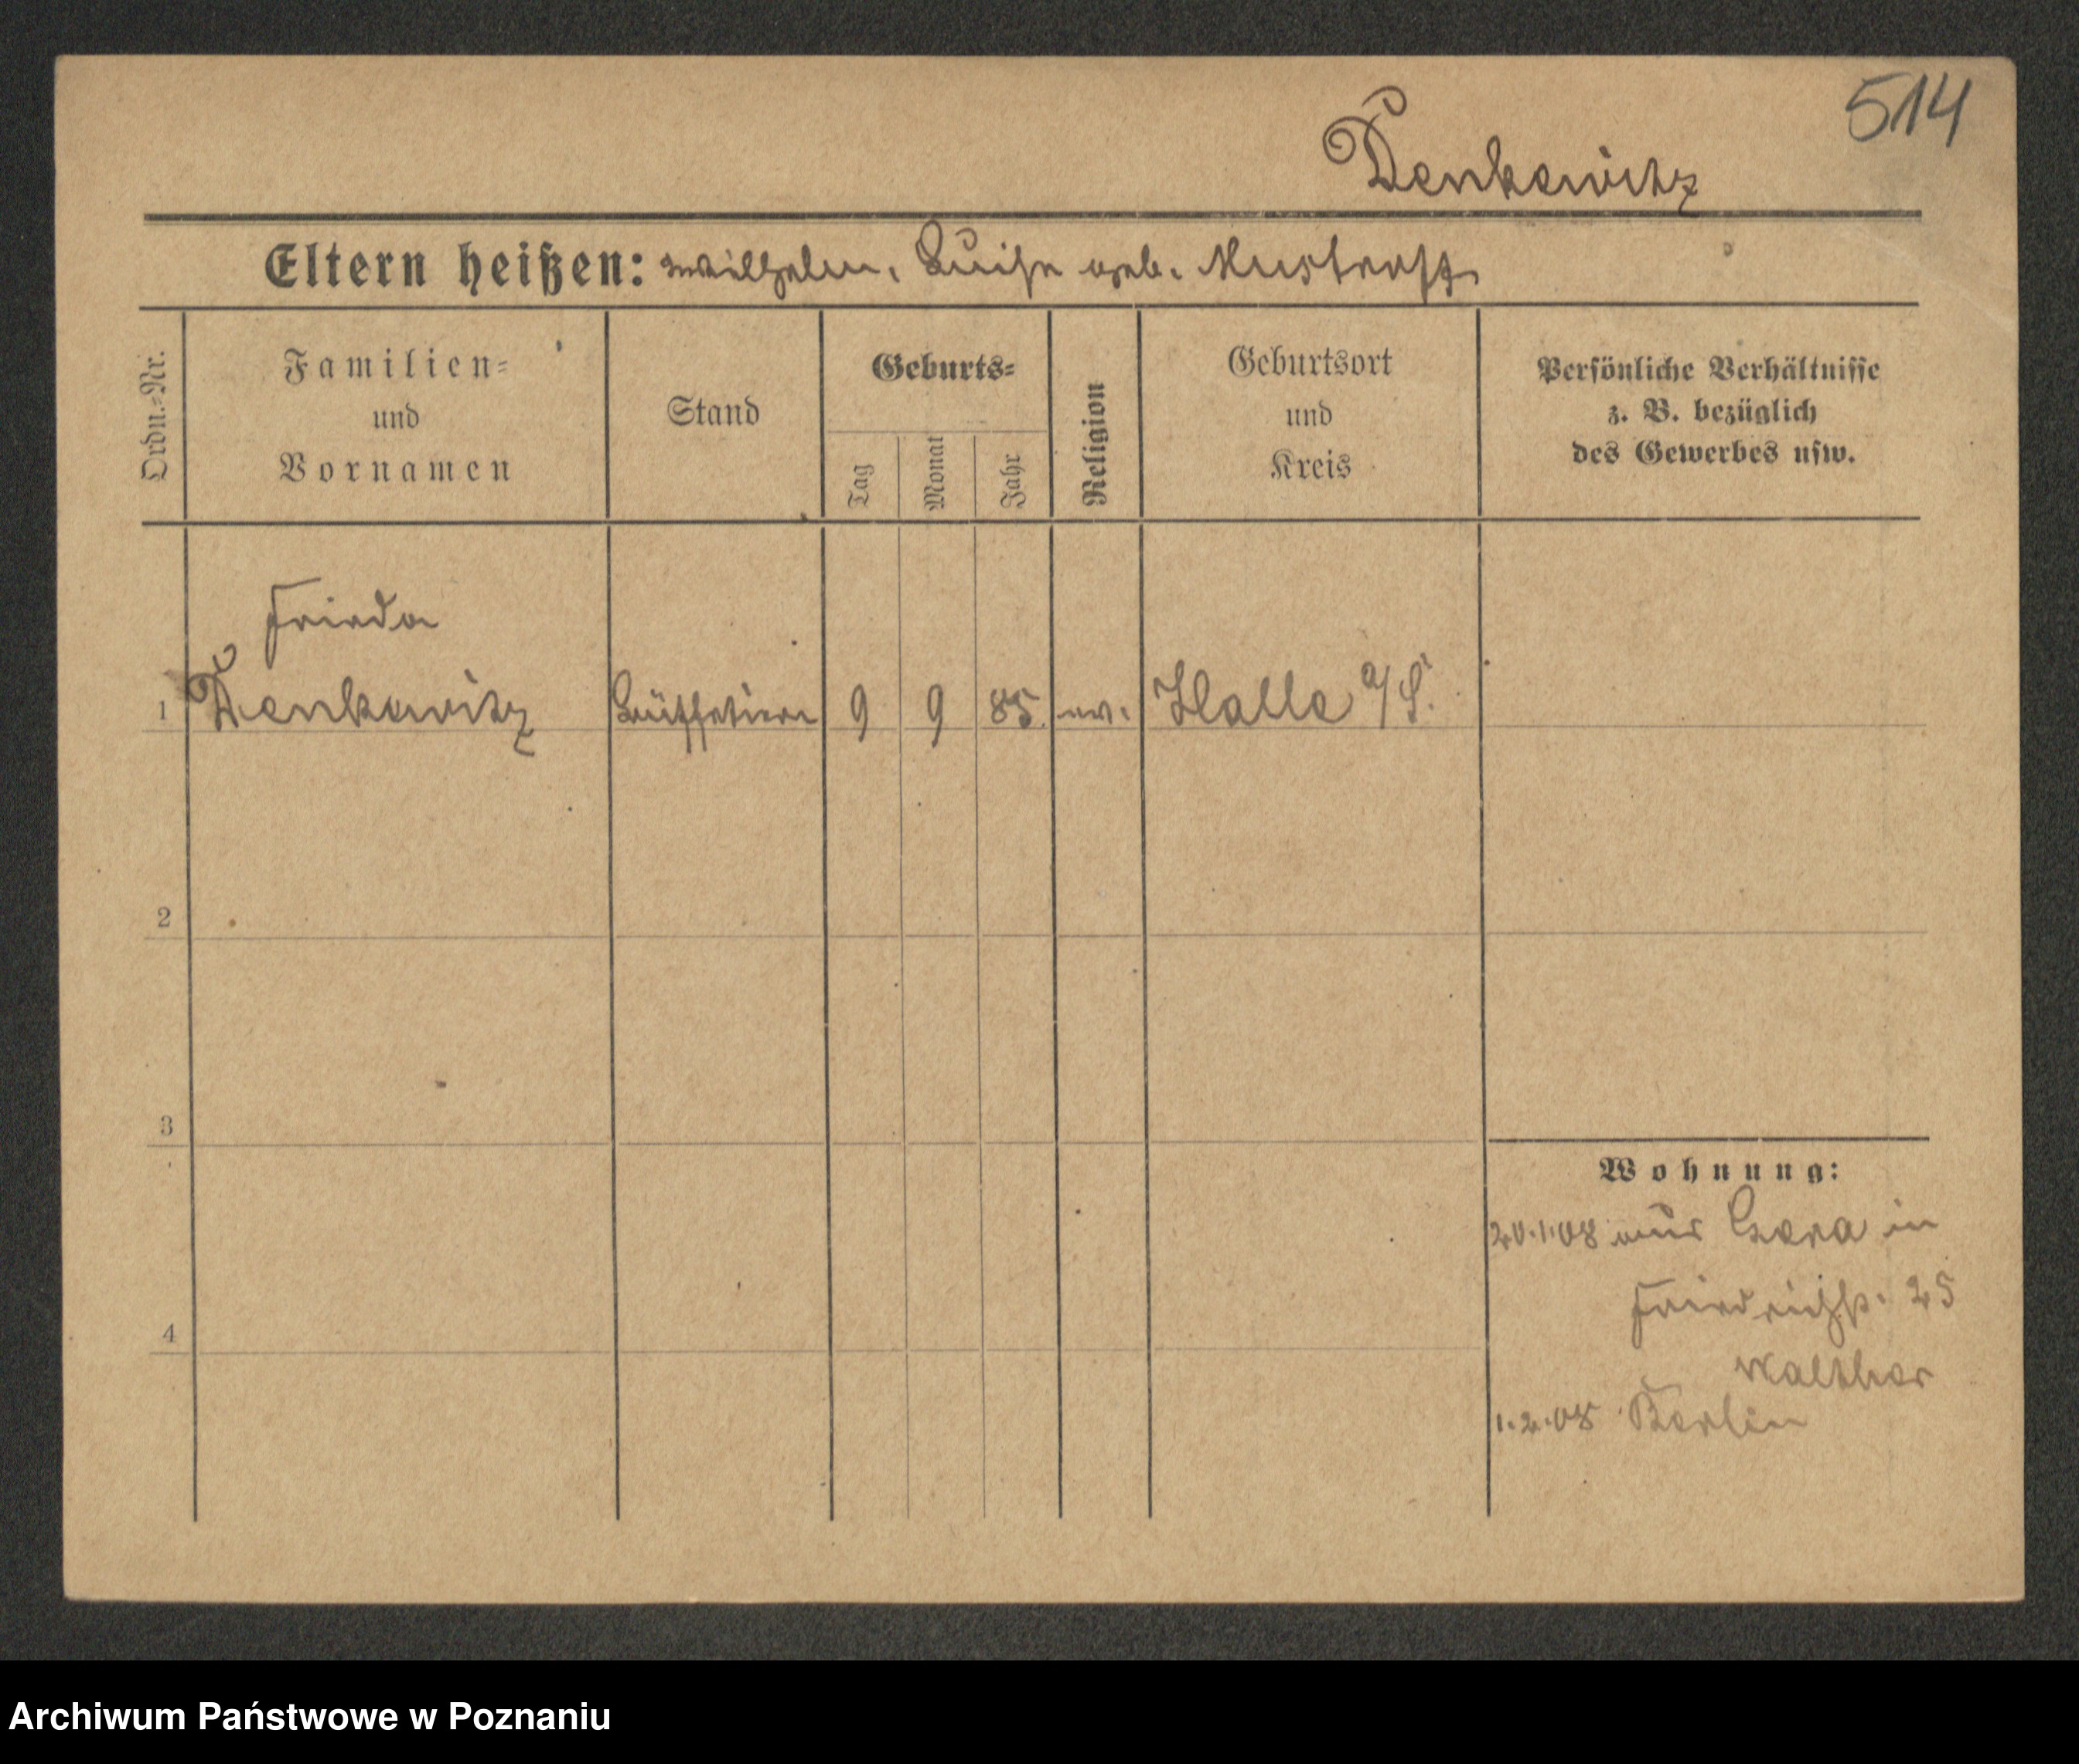 514
Denkewitz
Eltern heißen: Wilhelm, Luise geb.
Ordn.-Nr.
Familien-
und
Vornamen
Stand
Geburts-
Tag
Monat
Jahr
Religion
Geburtsort
und
Kreis
Persönliche Verhältnisse
z. B. bezüglich
des Gewerbes usw.
Frieda
1 Denkewitz Büffetiere 9 9 85. ev. Halle a/S.
2
3
4
Wohnung:
20.1.08 aus Gera in
Friedrichst. 25
Walther
1.2.08 Berlin
Archiwum Państwowe w Poznaniu